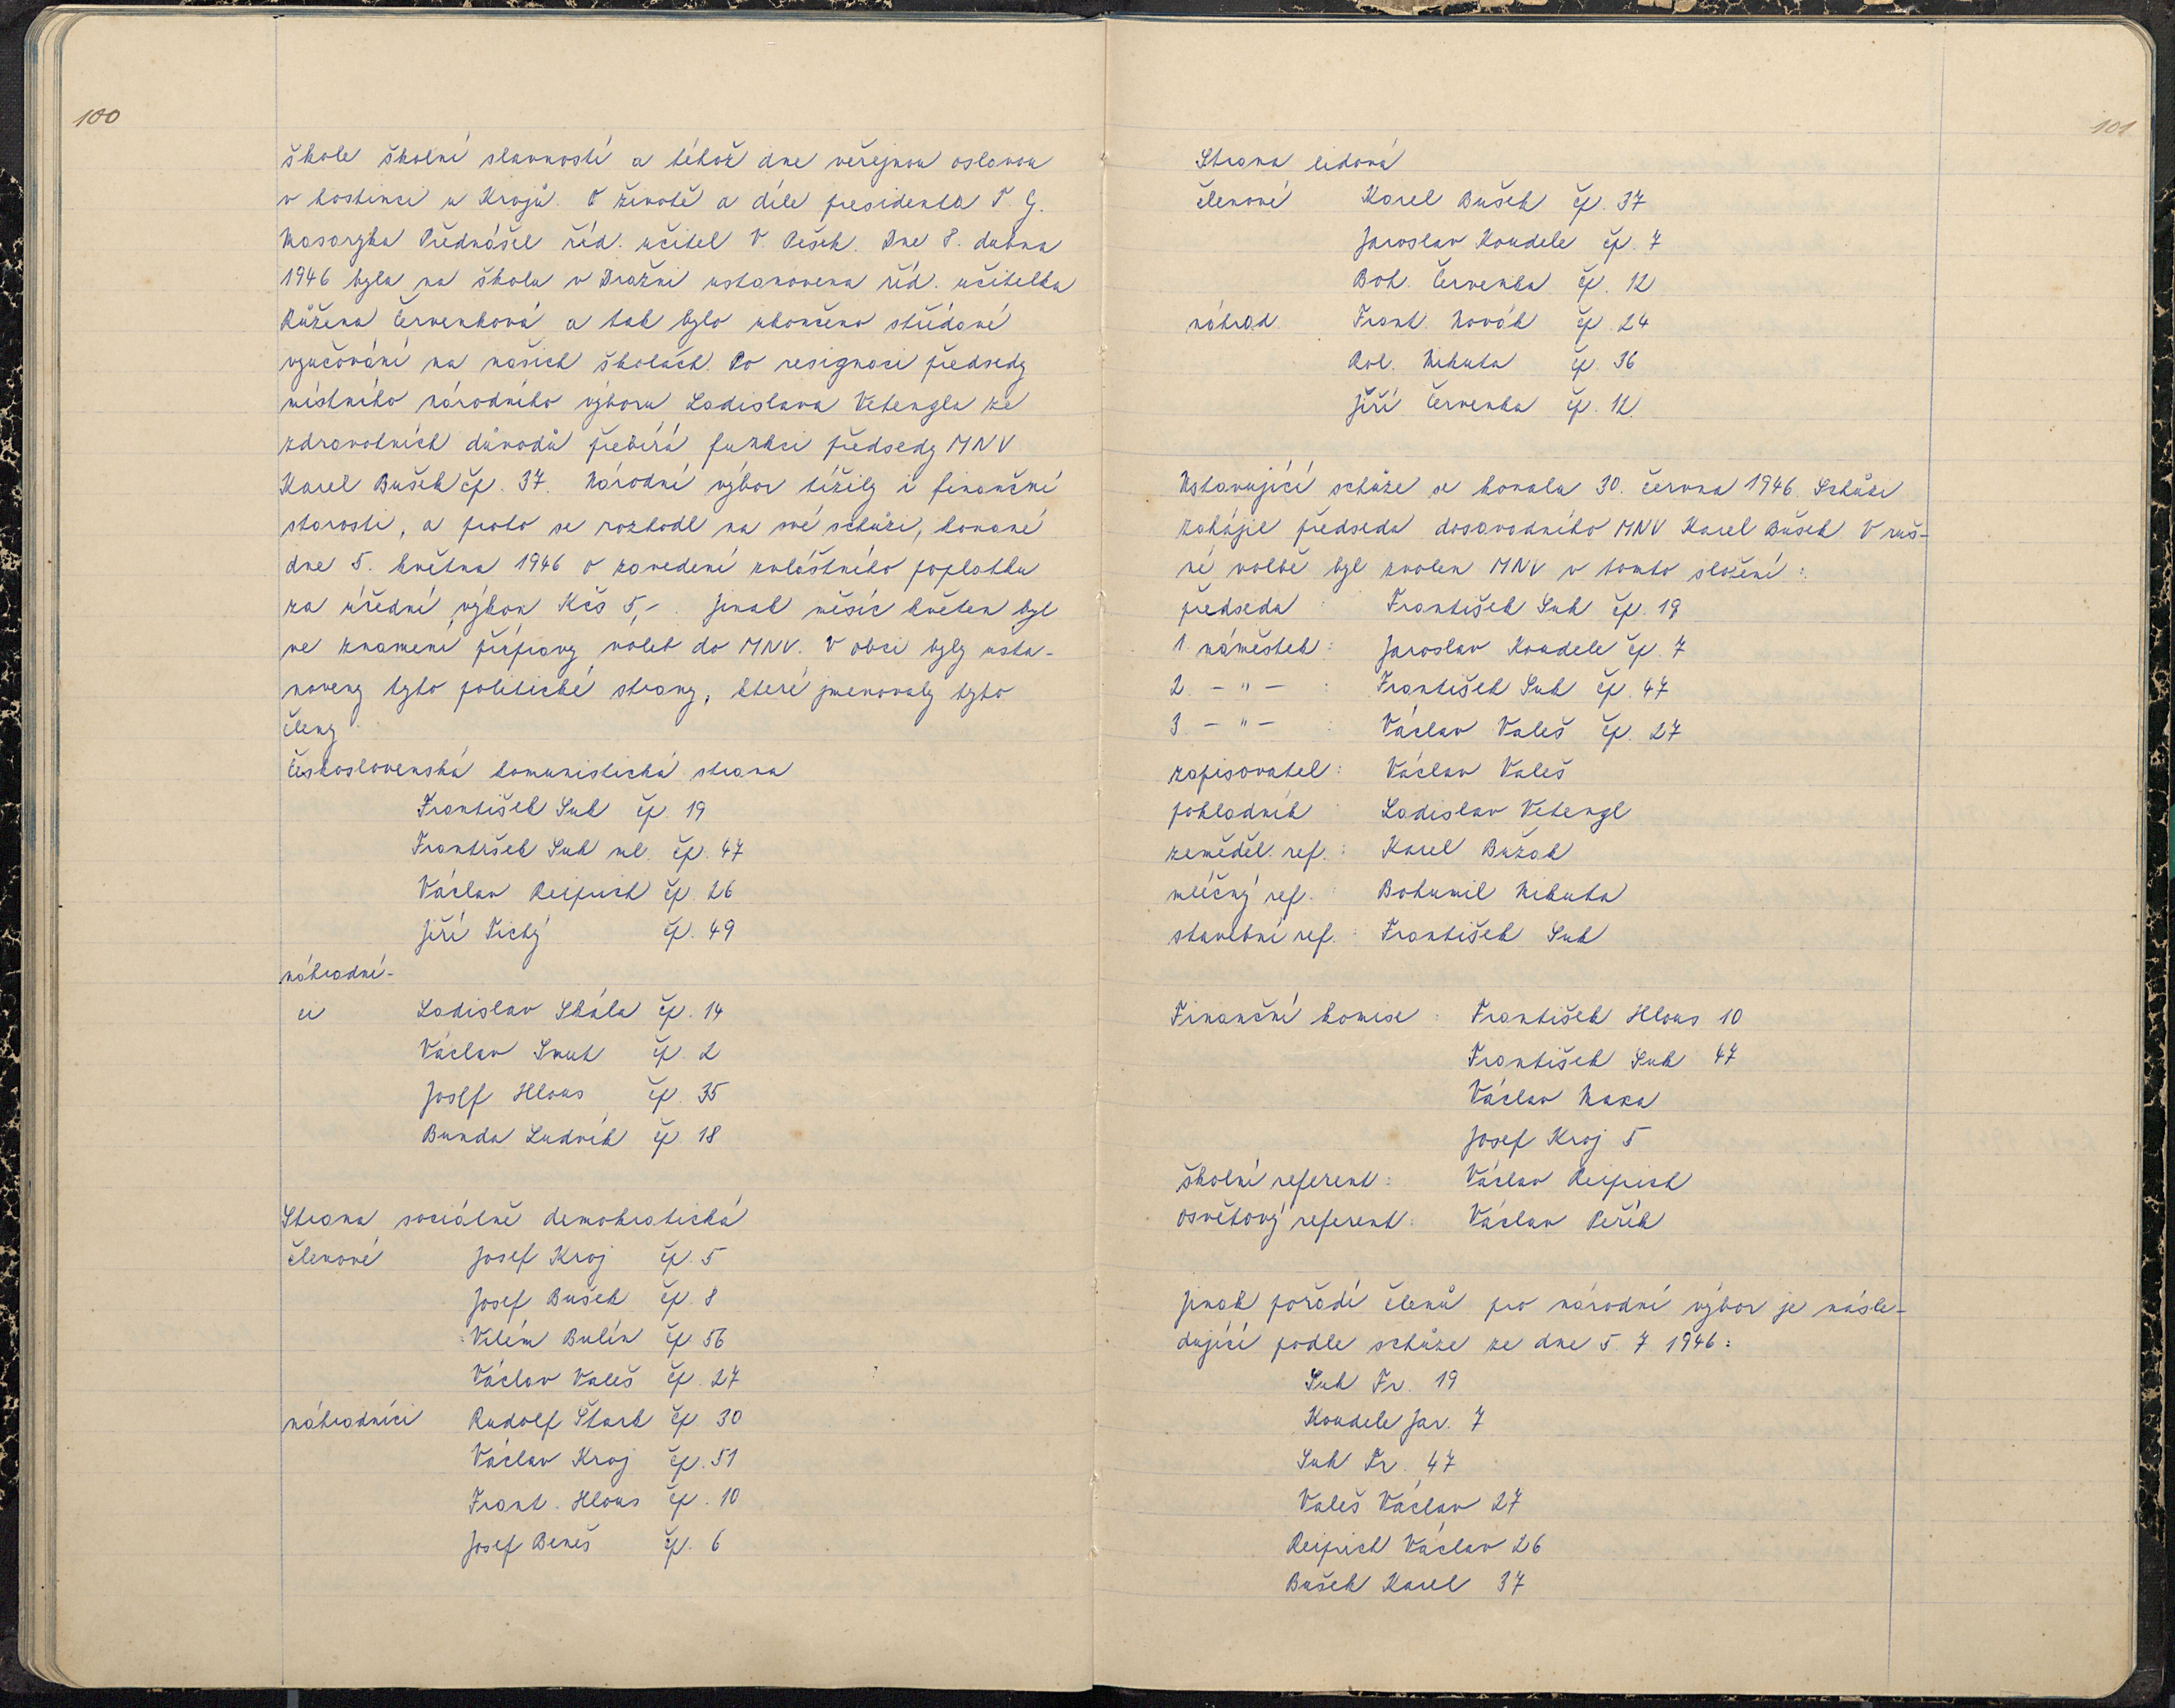 100
škole školní slavností a téhož dne veřejnou oslavou
v hostinci u Krajů. O životě a díle presidenta T. G.
Masaryka Přednášel říd. učitel V. Pešek. Dne 8. dubna
1946 byla na školu v Dražni ustanovena říd. učitelka
Růžena Červenková a tak bylo ukončeno střídavé
vyučování na našich školách. Po resignaci předsedy
místního národního výboru Ladislava Vetengla ze
zdravotních důvodů přebírá funkci předsedy MNV
Karel Bušek čp. 37. Národní výbor tížily i finanční
starosti, a proto se rozhodl na své schůzi, konané
dne 5. května 1946 o zavedení zvláštního poplatku
za úřední výkon Kčs 5,-. Jinak měsíc květen byl
ve znamení přípravy voleb do MNV. V obci byly usta-
noveny tyto politické strany, které jmenovaly tyto
členy
Československá komunistická strana
František Suk čp. 19
František Suk ml. čp. 47
Václav Reipich čp. 26
Jiří Tichý čp. 49
náhradní-
ci Ladislav Skála čp. 14
Václav Smut čp. 2
Josef Hlous čp. 35
Bunda Ludvík čp. 18
Strana sociálně demokratická
členové Josef Kroj čp. 5
Josef Bušek čp. 8
Vilém Bulín čp. 56
Václav Valeš čp. 27
náhradníci Rudolf Štark čp. 30
Václav Kroj čp. 51
Frant. Hlous čp. 10
Josef Beneš čp. 6
101
Strana lidová
členové Karel Bušek čp. 37
Jaroslav Koudele čp. 7
Boh. Červenka čp. 12
náhrad. Frant. Novák čp. 24
Rol. Mikuta čp. 36
Jiří Červenka čp. 12
Ustavující schůze se konala 30. června 1946. Schůzi
zahájil předseda dosavadního MNV Karel Bušek. V ruš-
né volbě byl zvolen MNV v tomto složení:
předseda : František Suk čp. 19
1. náměstek: Jaroslav Koudele čp. 7
2. - " - : František Suk čp. 47
3 - " - : Václav Valeš čp. 27
zapisovatel: Václav Valeš
pokladník : Ladislav Vetengl
zeměděl. ref. : Karel Bužak
mléčný ref. : Bohumil Mikuta
stavební ref. : František Suk
Finanční komise : František Hlous 10
František Suk 47
Václav Maxa
Josef Kroj 5
školní referent: Václav Reipich
osvětový referent: Václav Peřík
Jinak pořadí členů pro národní výbor je násle-
dující podle schůze ze dne 5. 7. 1946:
Suk Fr. 19
Koudele Jar. 7
Suk Fr. 47
Valeš Václav 27
Reipich Václav 26
Bušek Karel 37